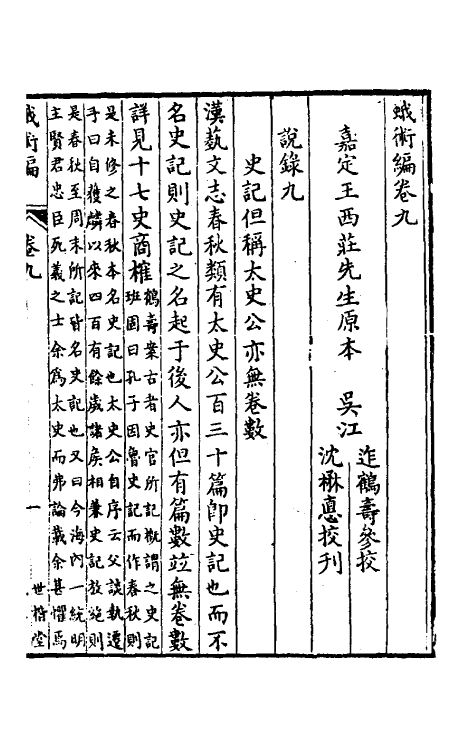 蛾術編卷九
嘉定王西莊先生原本　吳江
迮鶴壽參挍
沈楙悳挍刊
說錄九
史記但稱太史公亦無卷數
漢藝文志春秋類有太史公百三十篇卽史記也而不
名史記則史記之名起于後人亦但有篇數竝無卷數
詳見十七史商榷
鶴壽案古者史官所記槪謂之史記
班固曰孔子因魯史記而作春秋則
是未修之春秋本名史記也太史公自序云父談執遷
手曰自獲麟以來四百有餘歲諸矦相兼史記放絕則
是春秋至周末所記皆名史記也又曰今海內一統明
主賢君忠臣死義之士余爲太史而弗論載余甚懼焉
蛾術編
卷九
一
世楷堂